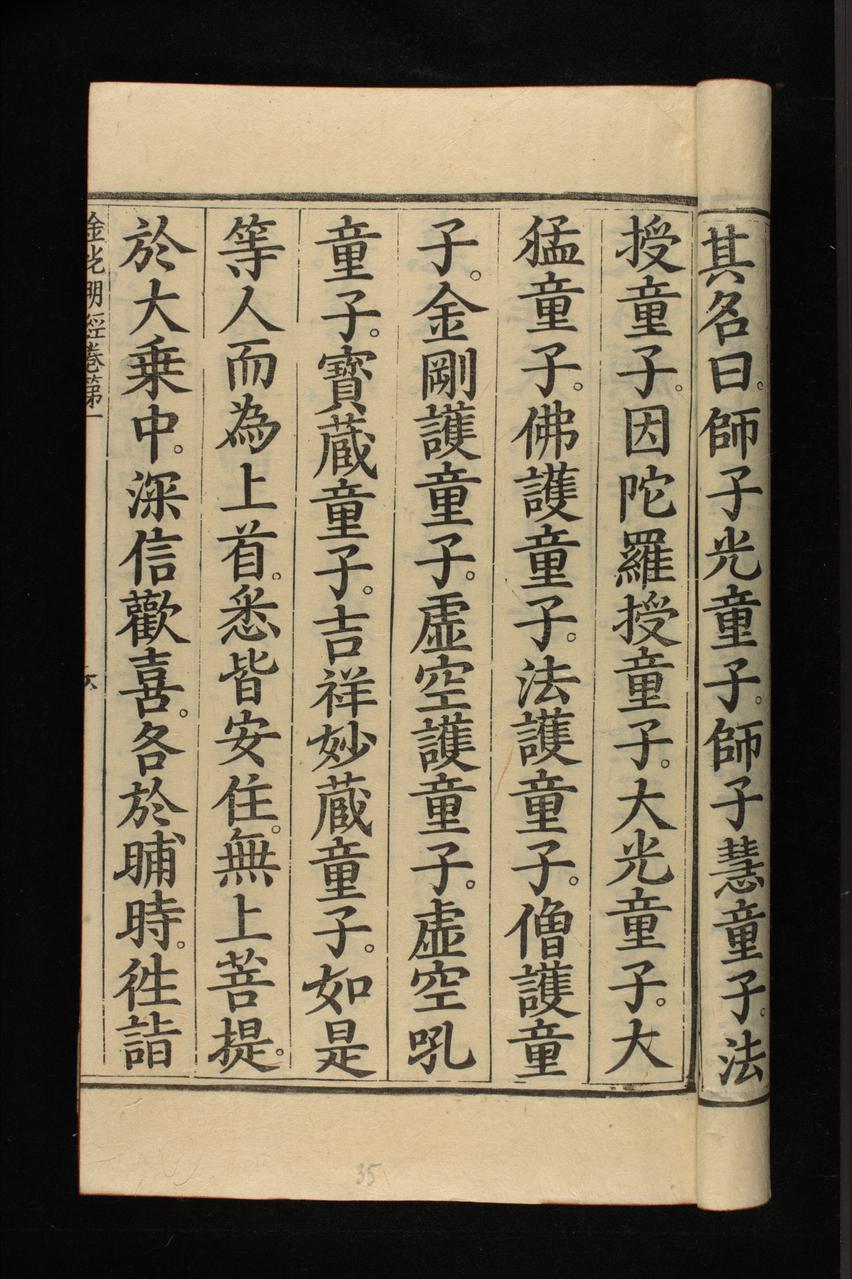 其名曰。師子光童子。師子慧童子。法
授童子。因陀羅授童子。大光童子。大
猛童子。佛護童子。法護童子。僧護童
子。金剛護童子。虛空護童子。虛空吼
童子。寶藏童子。吉祥妙藏童子。如是
等人而為上首。悉皆安住。無上菩提。
於大乗中。深信歡喜。各於晡時。徃詣
金光明經卷第一
六
35